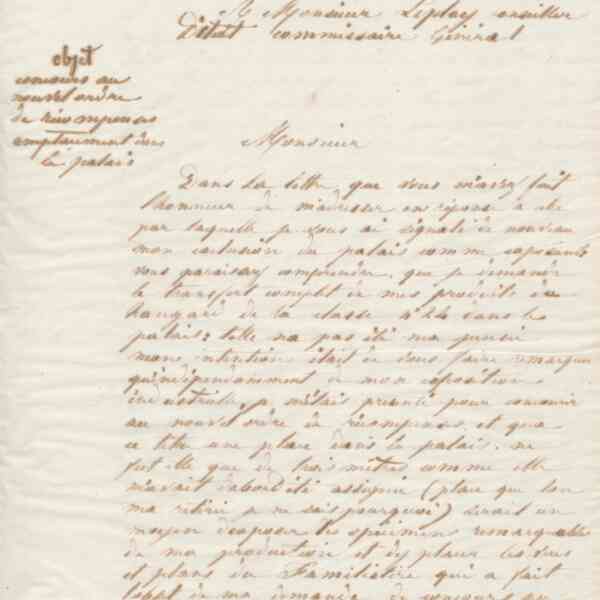 A Monsieur Leplay conseiller
D'état commissaire Général
objet
concours au
nouvel ordre
de récompenses
emplacement dans
le palais
Monsieur
Dans la lettre que vous m'avez fait
l'honneur de m'adresser en réponse à celle
par laquelle je vous ai signalé de nouveau
mon exclusion du palais comme exposant
vous paraissez comprendre que je demande
le transfert complet de mes produits du
hangard de la classe n° 24 dans le
palais: telle n'a pas été ma pensée
mon intention était de vous faire remarquer
qu'indépendamment de mon exposition
industrielle je m'étais présenté pour concourir
au nouvel ordre de récompenses et que
à ce titre une place dans le palais, ne
fut elle que de trois mètres comme elle
m'avait d'abord été assignée (place que l'on
m'a retirée je ne sais pourquoi) serait un
moyen d'exposer les spécimens remarquables
de ma production et d'y placer les vues
et plans du Familistère qui a fait
l'objet de ma demande de concours au